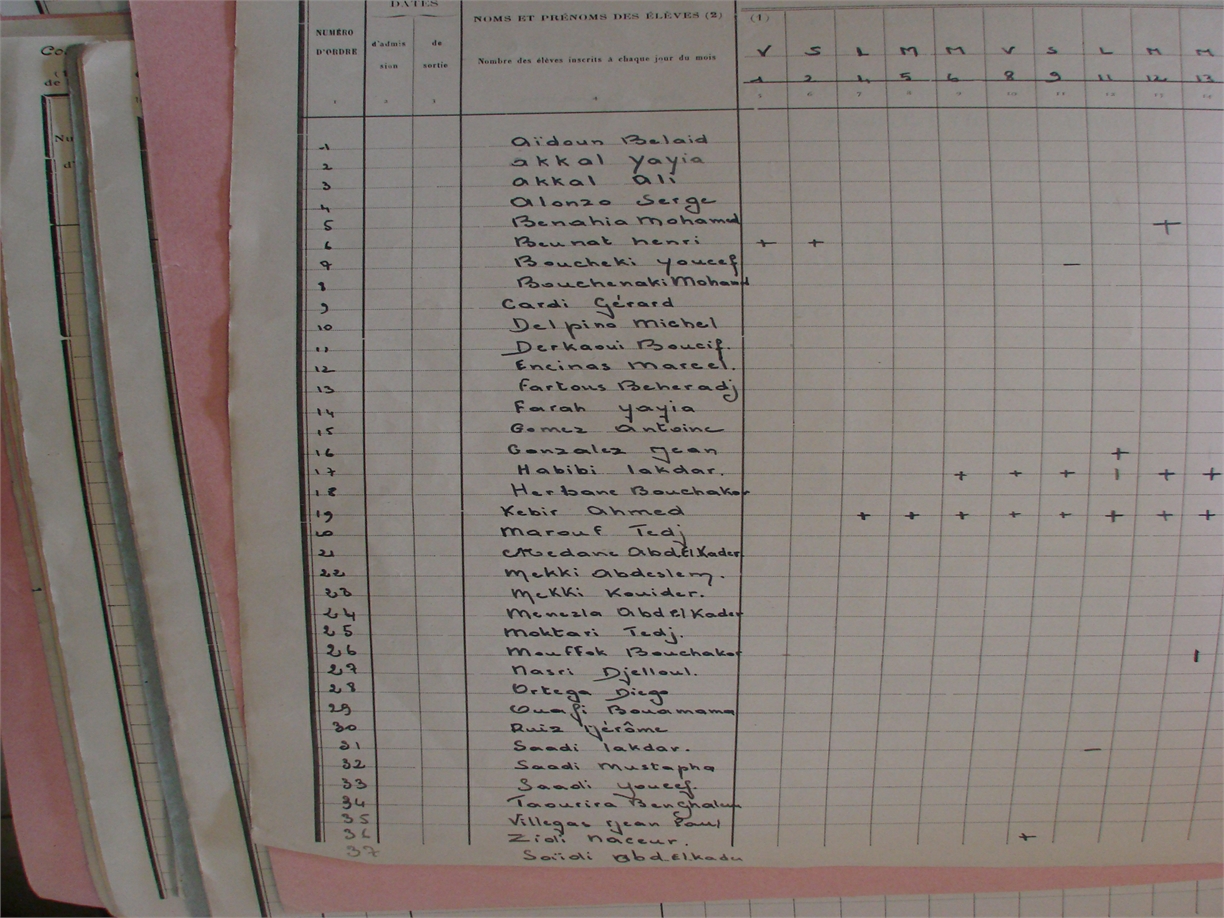 DATES
NOMS ET PRÉNOMS DES ÉLÈVES (2)
(1)
NUMÉRO
D'ORDRE
d'admis
sion
de
sortie
Nombre des élèves inscrits à chaque jour du mois
V S L M M V S L M M
1 2 4 5 6 8 9 11 12 13
1 2 3 4 5 6 7 8 9 10 11 12 13 14
1 Aïdoun Belaid
2 akkal yayia
3 akkal ali
4 Alonzo Serge
5 Benahia Mohamed +
6 Beunat henri + +
7 Boucheki youcef –
8 Bouchenaki Mohamed
9 Cardi Gérard
10 Delpino Michel
11 Derkaoui Boucif.
12 Encinas Marcel.
13 Fartous Beheradj
14 Farah yayia
15 Gomez Antoine
16 Gonzalez Jean +
17 Habibi lakdar. + + + ı + +
18 Herbane Bouchakor
19 Kebir Ahmed + + + + + + + +
20 Marouf Tedj
21 Medane AbdElKader
22 Mekki Abdeslem.
23 Mekki Kouider.
24 Menezla AbdElKader
25 Moktari Tedj.
26 Mouffok Bouchakor ı
27 Nasri Djelloul.
28 Ortega Diego
29 Ouafi Bouamama
30 Ruiz Jérôme
31 Saadi lakdar. –
32 Saadi Mustapha
33 Saadi youcef.
34 Taourira Benghalem
35 Villegas Jean Paul
36 Zidi Naceur. +
37 Saïdi AbdElkader
Co
de
Nu
d'